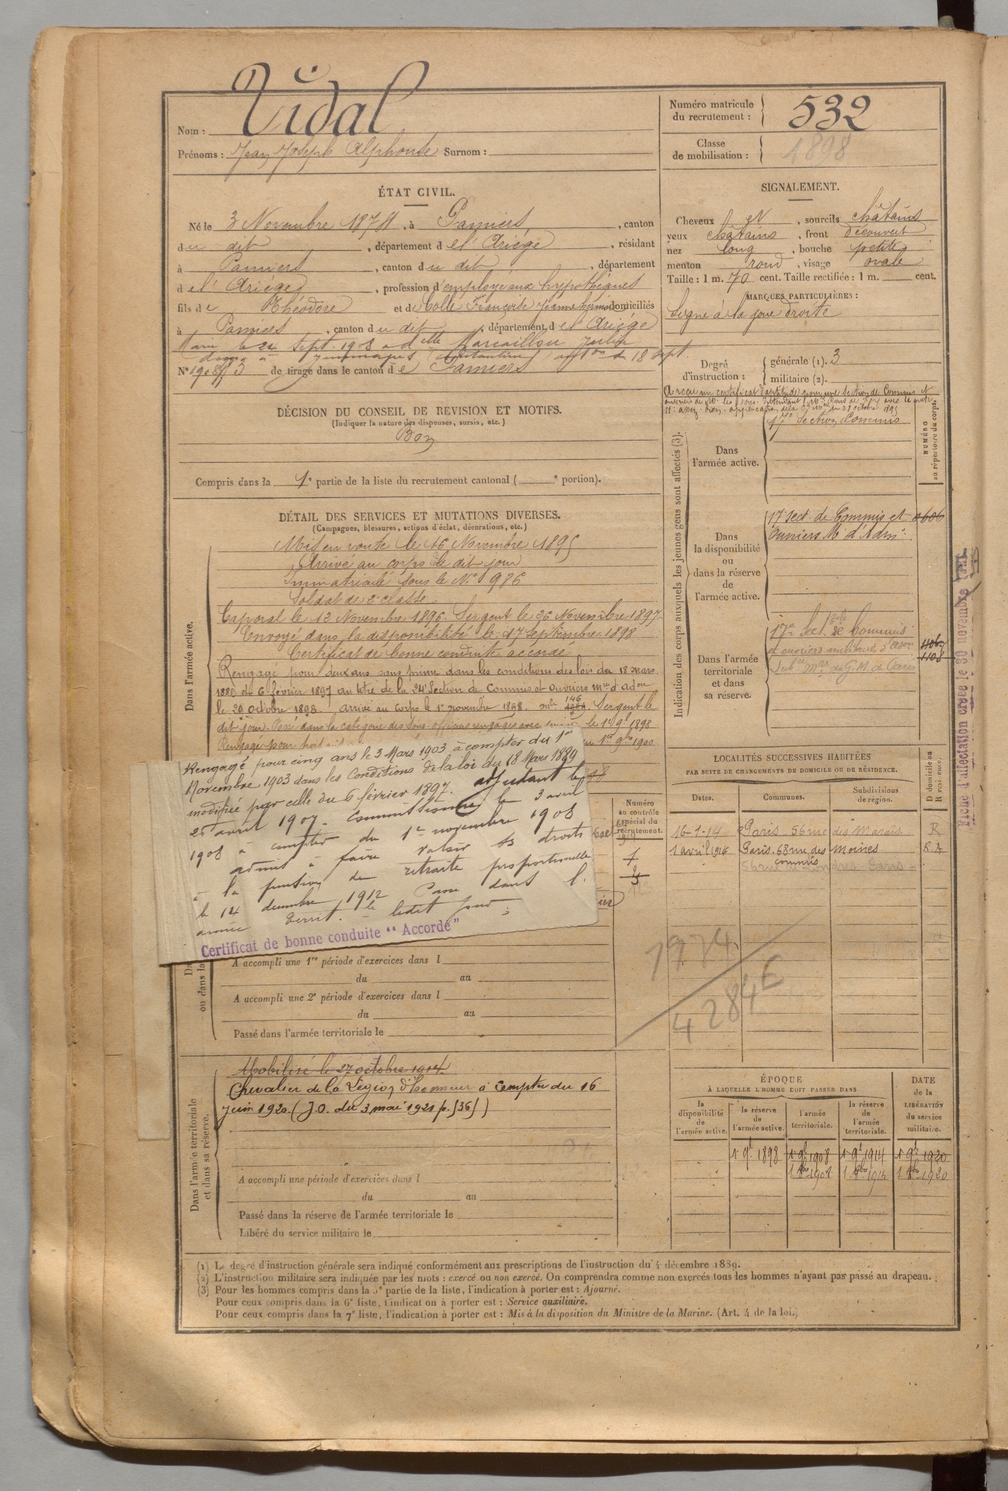 Nom : Vidal
Prénoms : Jean Joseph Alphonse Surnom :
Numéro matricule du recrutement : 532
Classe de mobilisation : 1898
ÉTAT CIVIL.
Né le 3 Novembre 1874, à Pamiers, canton
du dit, département de l'Ariège, résidant
à Pamiers, canton du dit, département
de l'Ariège, profession d'employé aux hypothèques
fils de Théodore et de Françoise domiciliés
à Pamiers, canton du dit, département de l'Ariège
Marié le Sept. 1908 à dlle Marcaillou
18 sept.
1908
N° 3 de tirage dans le canton de Pamiers
SIGNALEMENT.
Cheveux et, sourcils châtains
yeux châtains, front découvert
nez long, bouche petite
menton rond, visage ovale
Taille : 1 m. 70 cent. Taille rectifiée : 1 m. cent.
MARQUES PARTICULIÈRES :
Signe à la joue droite
Degré d'instruction : générale (1). 3
militaire (2).
DÉCISION DU CONSEIL DE REVISION ET MOTIFS.
(Indiquer la nature des dispenses, sursis, etc.)
Bon
Compris dans la 1e partie de la liste du recrutement cantonal ( e portion).
Indication des corps auxquels les jeunes gens sont affectés (3).
NUMÉRO au répertoire du corps.
Dans l'armée active.
17e Section Commis
Dans la disponibilité ou dans la réserve de l'armée active.
17 Sect. de Commis et
Ouvriers M. d'Adm.
Dans l'armée territoriale et dans sa réserve.
17e Sect. de Commis
et ouvriers militaires d'adm.
1108
DÉTAIL DES SERVICES ET MUTATIONS DIVERSES.
(Campagnes, blessures, actions d'éclat, décorations, etc.)
Dans l'armée active.
Mis en route le 16 Novembre 1895
Arrivé au corps le dit jour
Immatriculé sous le N° 986
Soldat de 2e classe
Caporal le 13 Novembre 1896. Sergent le 26 Novembre 1897
Envoyé dans la disponibilité le 17 Septembre 1898
Certificat de bonne conduite accordé
Rengagé pour deux ans sans prime dans les conditions des lois des 18 mars
1889 de 6 février 1897 au titre de la 24e Section de Commis et Ouvriers Mres d'adon
le 20 octobre 1898. arrivé au corps le 1er novembre 1898. Sergent le
dit jour. Passé dans la catégorie des sous-officiers rengagés avec le 1er 9bre 1898
Rengagé pour
9bre 1900
Rengagé pour cinq ans le 3 Mars 1903 à compter du 1er
Novembre 1903 dans les Conditions de la loi du 18 Mars 1889
modifiée par celle du 6 février 1897. adjudant le
25 avril 1907. Commissionné le 3 avril
1908 à compter du 1er novembre 1908
admit à faire valoir ses droits
à la pension de retraite proportionnelle
le 14 décembre 1912 Passé dans l.
armée territ. le ledit jour ;
Certificat de bonne conduite " Accordé "
Numéro au contrôle spécial du recrutement.
LOCALITÉS SUCCESSIVES HABITÉES
PAR SUITE DE CHANGEMENTS DE DOMICILE OU DE RÉSIDENCE.
Dates. Communes. Subdivisions de région. D domicile ou R résidence.
16-1-14 Paris 56 rue des Marais R
1 avril 1916 Paris. 68 rue des Moines
1974
4284E
A accompli une 1re période d'exercices dans l
du au
A accompli une 2e période d'exercices dans l
du au
Passé dans l'armée territoriale le
Dans l'armée territoriale et dans sa réserve.
Mobilisé le 27 octobre 1914
Chevalier de la Légion d'honneur à compter du 16
juin 1920. (J.O. du 3 mai 1921 p. )
A accompli une période d'exercices dans l
du au
Passé dans la réserve de l'armée territoriale le
Libéré du service militaire le
ÉPOQUE À LAQUELLE L'HOMME DOIT PASSER DANS
la disponibilité de l'armée active. la réserve de l'armée active. l'armée territoriale. la réserve de l'armée territoriale. DATE de la LIBÉRATION du service militaire.
1 9e 1898 1 9e 1908 1 9e 1914 1 9e 1920
1 9bre 1908 1 9bre 1914 1 9bre 1920
(1) Le degré d'instruction générale sera indiqué conformément aux prescriptions de l'instruction du 4 décembre 1889.
(2) L'instruction militaire sera indiquée par les mots : exercé ou non exercé. On comprendra comme non exercés tous les hommes n'ayant pas passé au drapeau.
(3) Pour les hommes compris dans la 5e partie de la liste, l'indication à porter est : Ajourné.
Pour ceux compris dans la 6e liste, l'indication à porter est : Service auxiliaire.
Pour ceux compris dans la 7e liste, l'indication à porter est : Mis à la disposition du Ministre de la Marine. (Art. 4 de la loi.)
Fiche d'affectation créée le 30 novembre